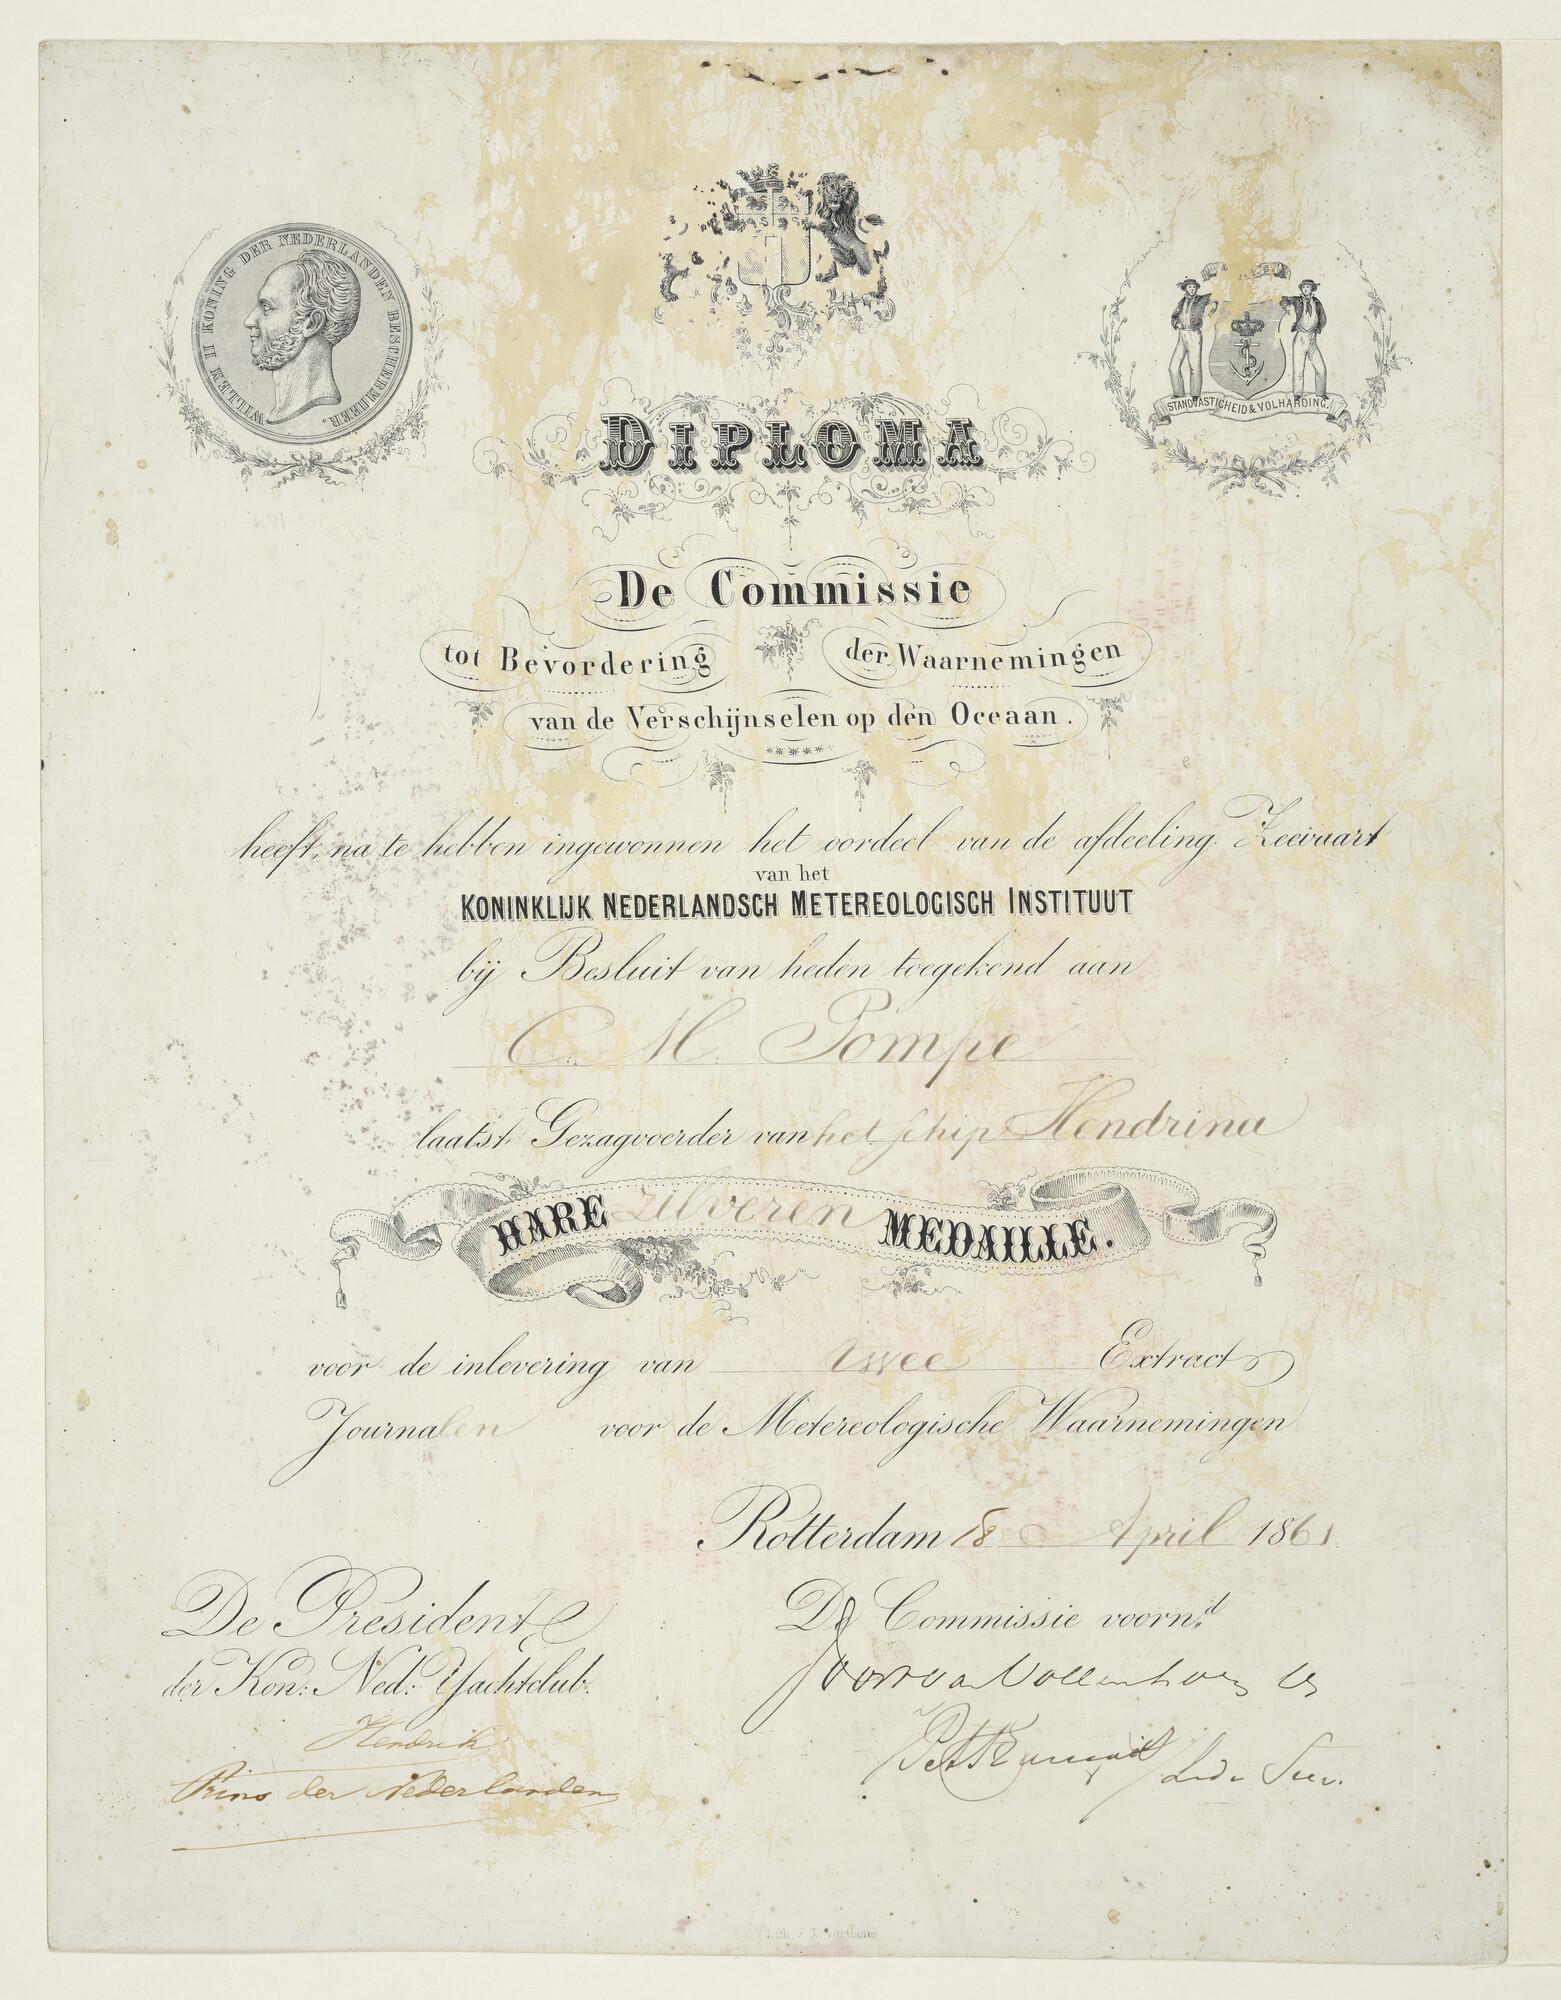 WILLEM II KONING DER NEDERLANDEN BESCHERMHEER.
STANDVASTIGHEID & VOLHARDING.
DIPLOMA
De Commissie
tot Bevordering der Waarnemingen
van de Verschijnselen op den Oceaan.
heeft, na te hebben ingewonnen het oordeel van de afdeeling Zeevaart
van het
KONINKLIJK NEDERLANDSCH METEREOLOGISCH INSTITUUT
bij Besluit van heden toegekend aan
C. M. Pompe
laatst Gezagvoerder van het schip Hendrina
HARE zilveren MEDAILLE.
voor de inlevering van twee Extract
Journalen voor de Metereologische Waarnemingen
Rotterdam 18 April 1861
De President
der Kon: Ned: Yachtclub.
De Commissie voornd
Hendrik
Prins der Nederlanden